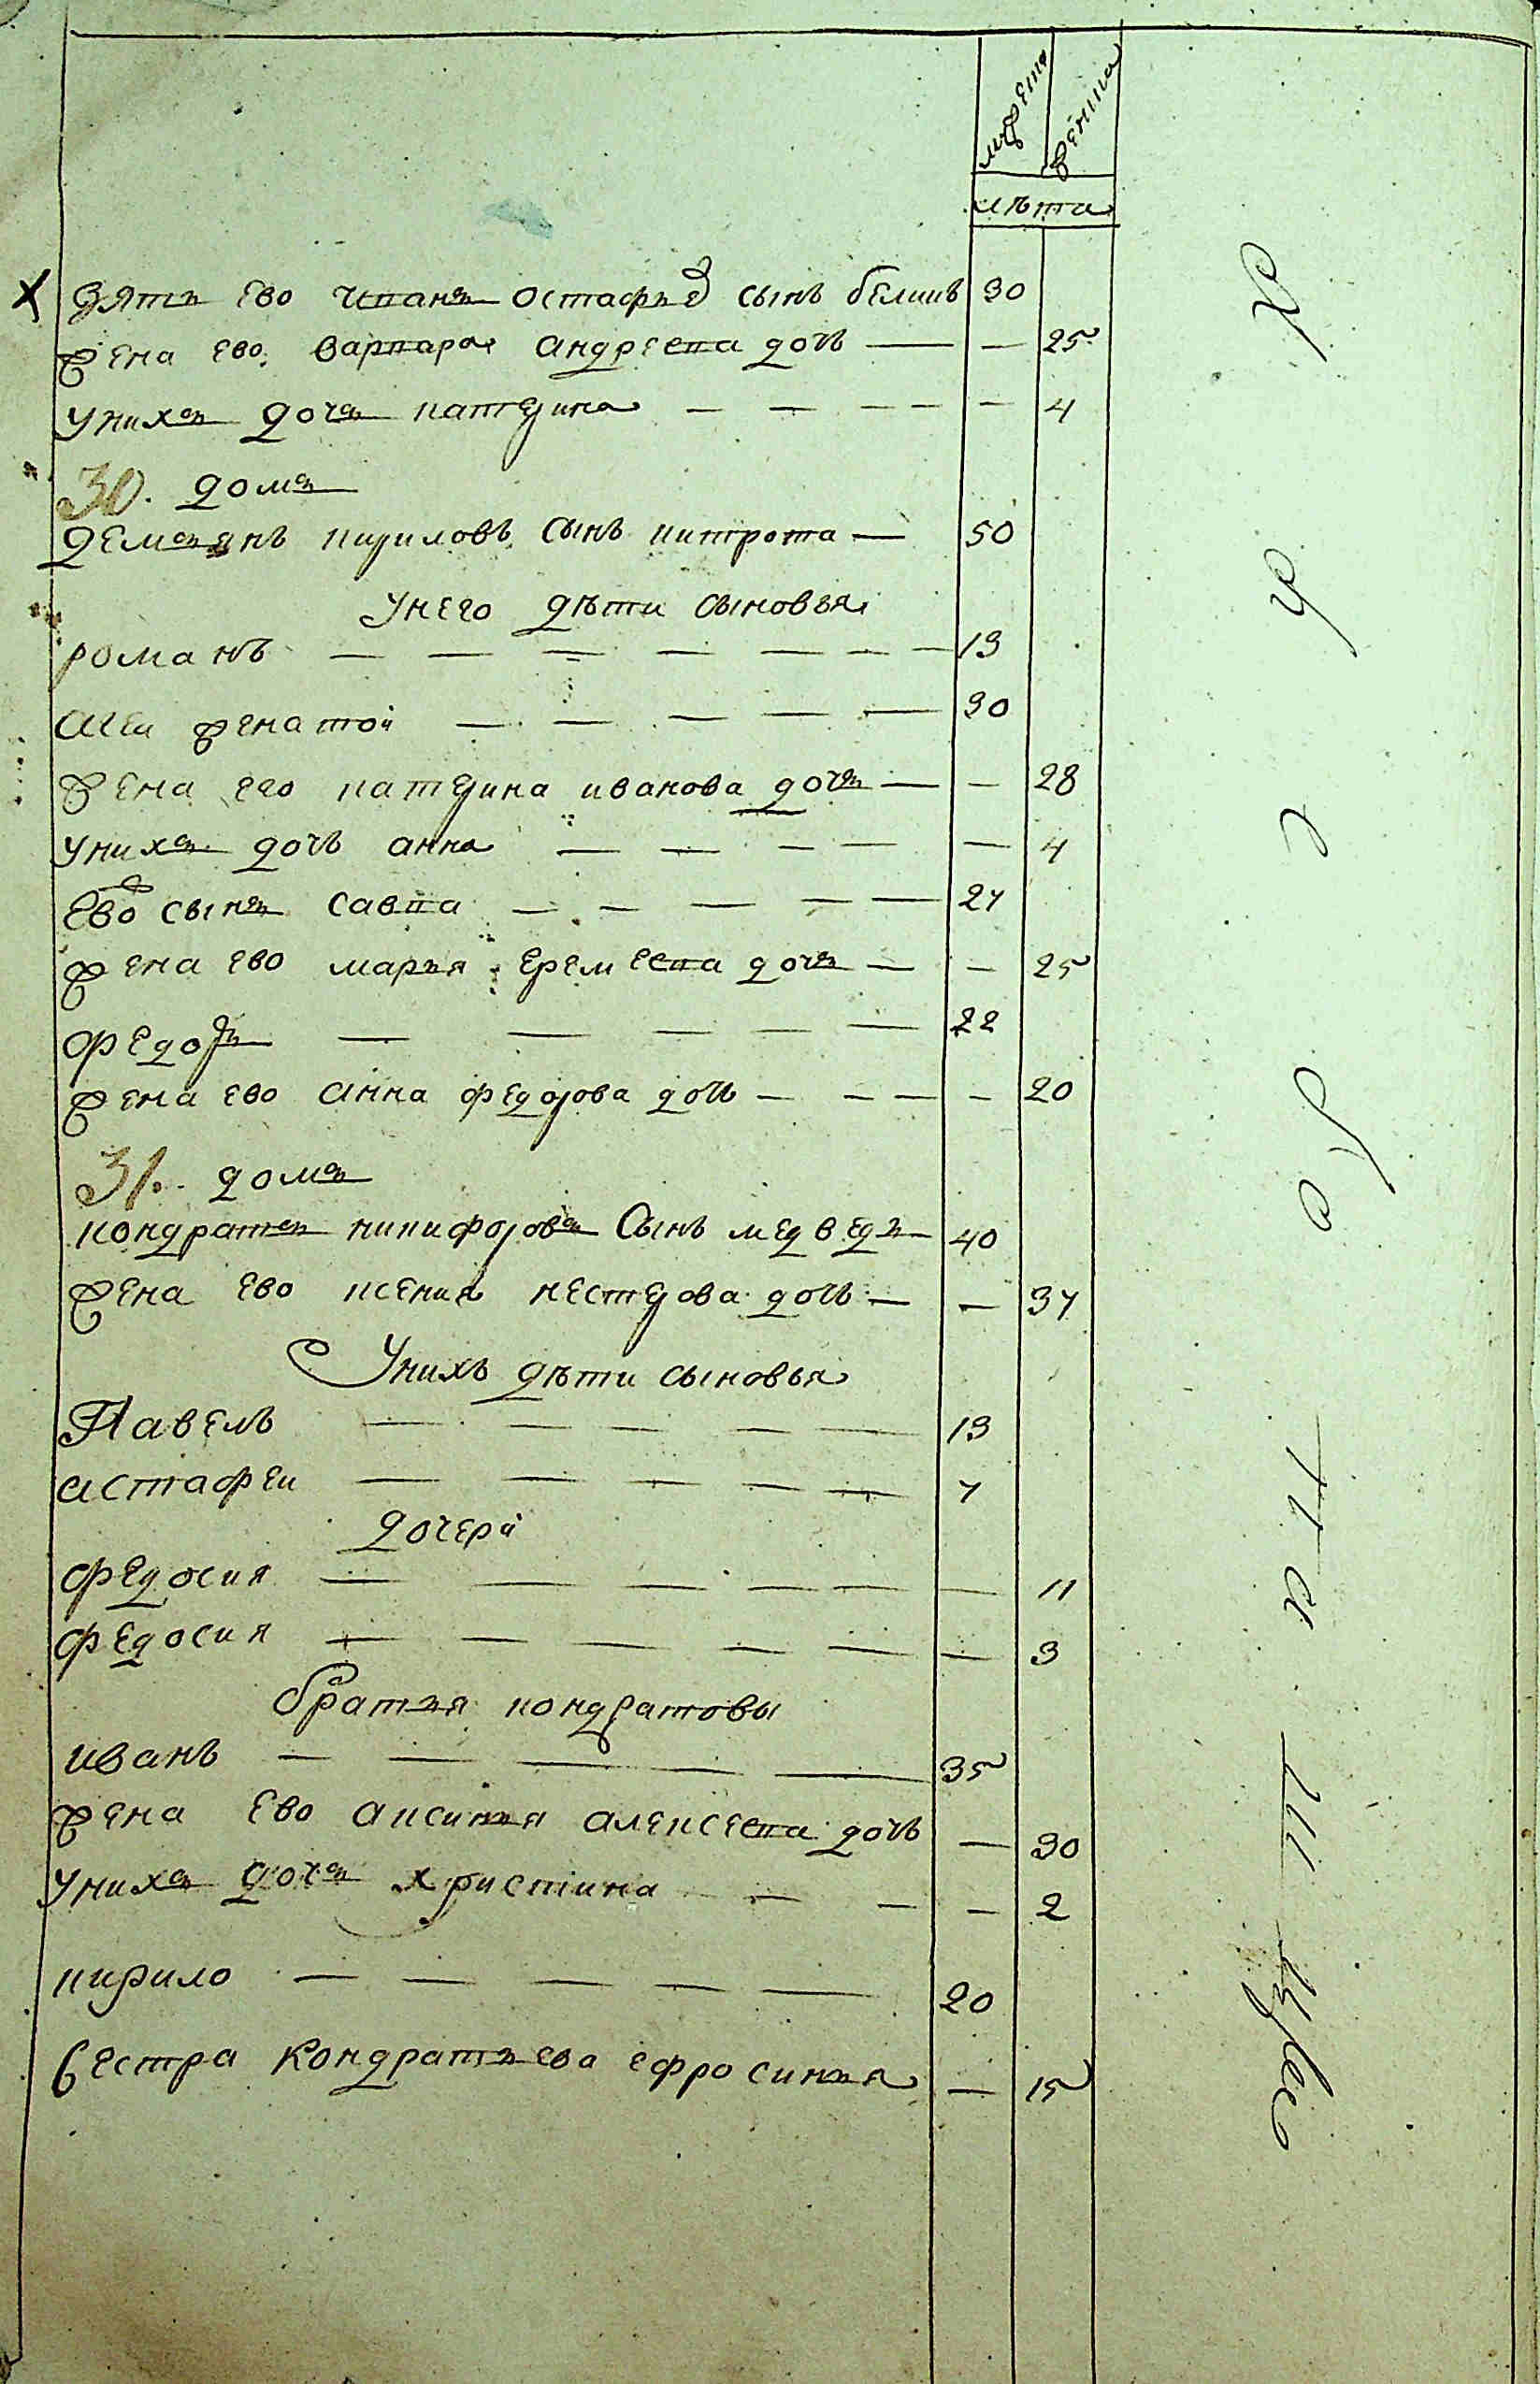 мужеска
женска
лѣта
Зять ево Степанъ Остафьевъ сынъ 30
жена ево Варвара Андреева дочь — — 25
У нихъ дочь Катерина — — — — — 4
30. домъ
Демьянъ Кириловъ сынъ — 50
У него дѣти сыновья
Романъ — — — — — — — 13
женатой — — — — — 30
жена его Катерина Иванова дочь — — 28
У нихъ дочь Анна — — — — — 4
Ево сынъ Савва — — — — — 27
жена ево Марья Еремеева дочь — — 25
Федоръ — — — — — 22
жена ево Анна Федорова дочь — — — — 20
31. домъ
Кондратей Никифоровъ Сынъ Медведь 40
жена ево Ксения Нестерова дочь — — 37
У нихъ дѣти сыновья
Павелъ — — — — — 13
Астафеи — — — — — 7
дочери
Федосия — — — — — — 11
Федосия — — — — — — 3
братья Кондратовы
Иванъ — — — — — 35
жена Ево Аксинья Алексеева дочь — 30
У нихъ дочь Христина — — — 2
Кирило — — — — — 20
Сестра Кондратьева Ефросинья — 15